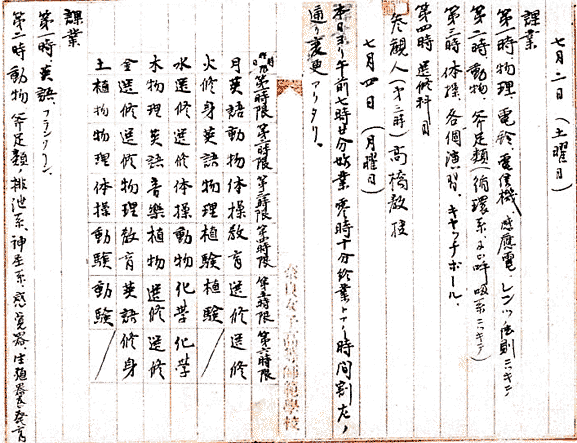 七月二日(土曜日)
課業
第一時物理、電鈴、電信機、感應電、レンツ法則ニキテ
第二時動物、斧足類(循環系及ビ呼吸系ニキテ)
第三時体操、各個演習、キャッチボール、
第四時選修科目
参観人(第二時)高橋教授
七月四日(月曜日)
本日ヨリ午前七時廿分始業 零時十分終業トナリ時間割左ノ
通リ変更アリタリ。
第一時限 第二時限 第三時限 第四時限 第五時限 第六時限
月 英語 動物 体操 教育 選修 選修
火 修身 英語 物理 植験 植験
水 選修 選修 体操 動物 化学 化学
木 物理 英語 音樂 植物 選修 選修
金 選修 選修 物理 教育 英語 修身
土 植物 物理 体操 動験 動験
奈良女子高等師範學校
課業
第一時 英語、フランクリン、
第二時 動物 斧足類ノ排泄系、神生系感覚器生殖器及発育